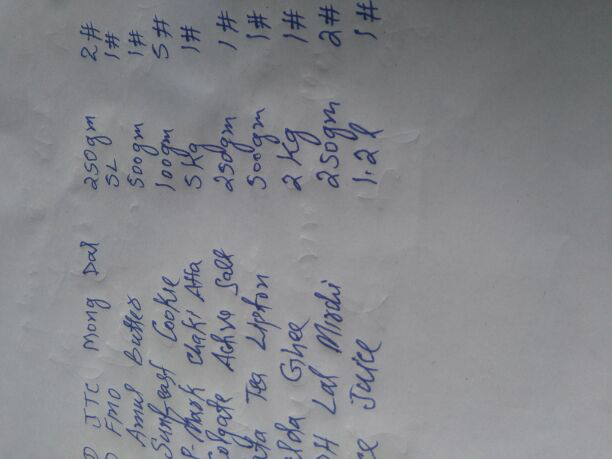 JTC Mong Dal 250gm 2#
FMO 5L 1#
Amul Butter 500gm 1#
Sunfeast Cookie 100gm 5#
P-Mark Chaki Atta 5Kg 1#
olgate Active Salt 250gm 1#
ata Tea Lipton 500gm 1#
lda Ghee 2Kg 1#
H Lal Mirchi 250gm 2#
ce Juice 1.2l 1#